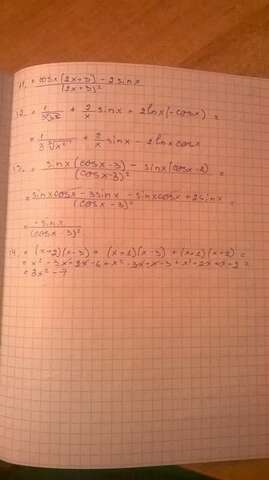 11. = cosx(2x+3) - 2sinx / (2x+3)²
12. = 1/3∛x² + 2/x sinx + 2lnx(-cosx) =
= 1/3∛x² + 2/x sinx - 2lnx cosx
13. = sinx(cosx-3) - sinx(cosx-2) / (cosx-3)² =
= sinxcosx - 3sinx - sinxcosx + 2sinx / (cosx-3)² =
= -sinx / (cosx-3)²
14. = (x+2)(x-3) + (x+1)(x-3) + (x+1)(x+2) =
= x² - 3x + 2x - 6 + x² - 3x + x - 3 + x² + 2x + x + 2 =
= 3x² - 7